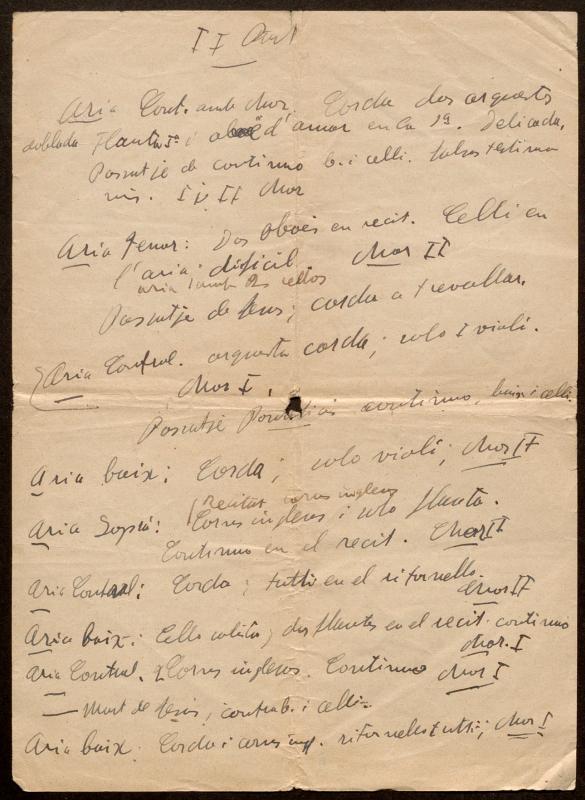 II Part
Aria Cont. amb chor. Corda dos orquestes
doblada Flauta Iª i oboe d'amor en la 2ª. Delicada.
Passatje de continuo b. i celli.
I i II Chor
Aria Tenor: Dos oboès en recit. Celli en
l'aria; dificil. Chor II
aria amb cellos
Passatje de Jesus; corda a trevallar.
Aria Contral. orquesta corda; solo I violi.
Chor I.
Passatje continuo, baix i celli.
Aria baix: Corda; solo violi; Chor II
(recitat corns inglesos
Aria Soprà: Corns inglesos i solo flauta.
Continuo en el recit. Chor II
Aria Contral: Corda; tutti en el ritornello.
Chor II
Aria baix: Cello solista; dos flautes en el recit. continuo
Chor. I
Aria Contral. 2 Corns inglesos. Continuo Chor I
— Mort de Jesús, contrab. i celli.
Aria baix. Corda i corns ing. ritornelos tutti; Chor I